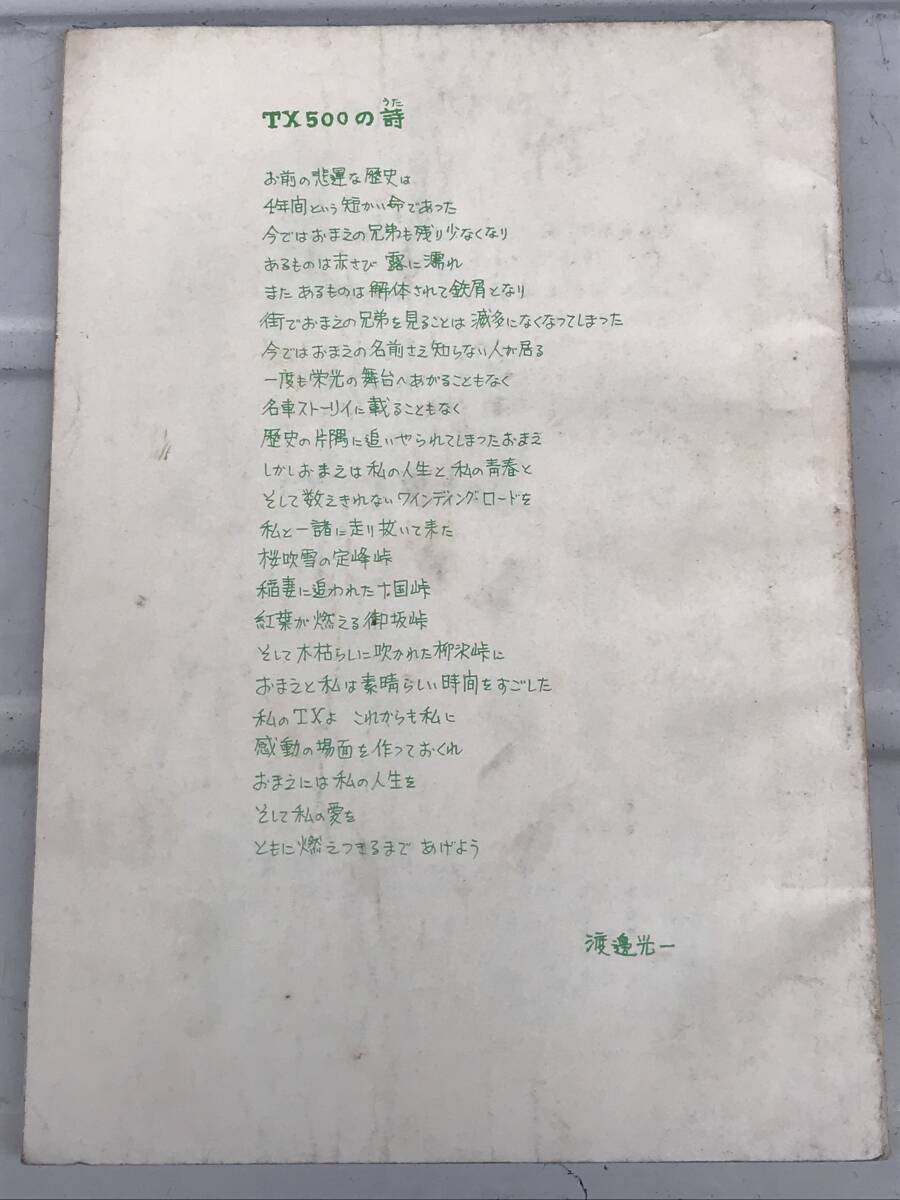 うた
TX500の詩
お前の悲運な歴史は
4年間という短かい命であった
今ではおまえの兄弟も残り少なくなり
あるものは赤さび 露に濡れ
また あるものは解体されて鉄屑となり
街でおまえの兄弟を見ることは 滅多になくなってしまった
今ではおまえの名前さえ知らない人が居る
一度も栄光の舞台へあがることもなく
名車ストーリイに載ることもなく
歴史の片隅に追いやられてしまったおまえ
しかしおまえは私の人生と 私の青春と
そして数えきれないワインディング・ロードを
私と一諸に走り抜いて来た
桜吹雪の定峰峠
稲妻に追われた十国峠
紅葉が燃える御坂峠
そして木枯らしに吹かれた柳沢峠に
おまえと私は素晴らしい時間をすごした
私のTXよ これからも私に
感動の場面を作っておくれ
おまえには私の人生を
そして私の愛を
ともに燃えつきるまで あげよう
渡邊光一